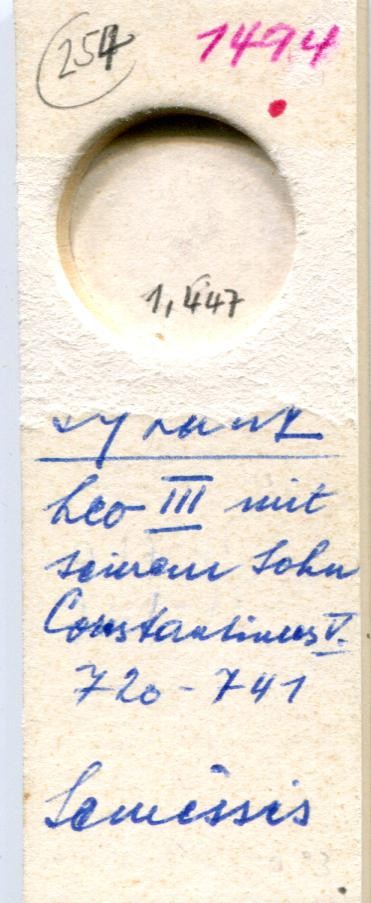 254 1494
1,447
Byzanz
Leo III mit
seinem Sohn
Constantinus V.
720-741
Semissis